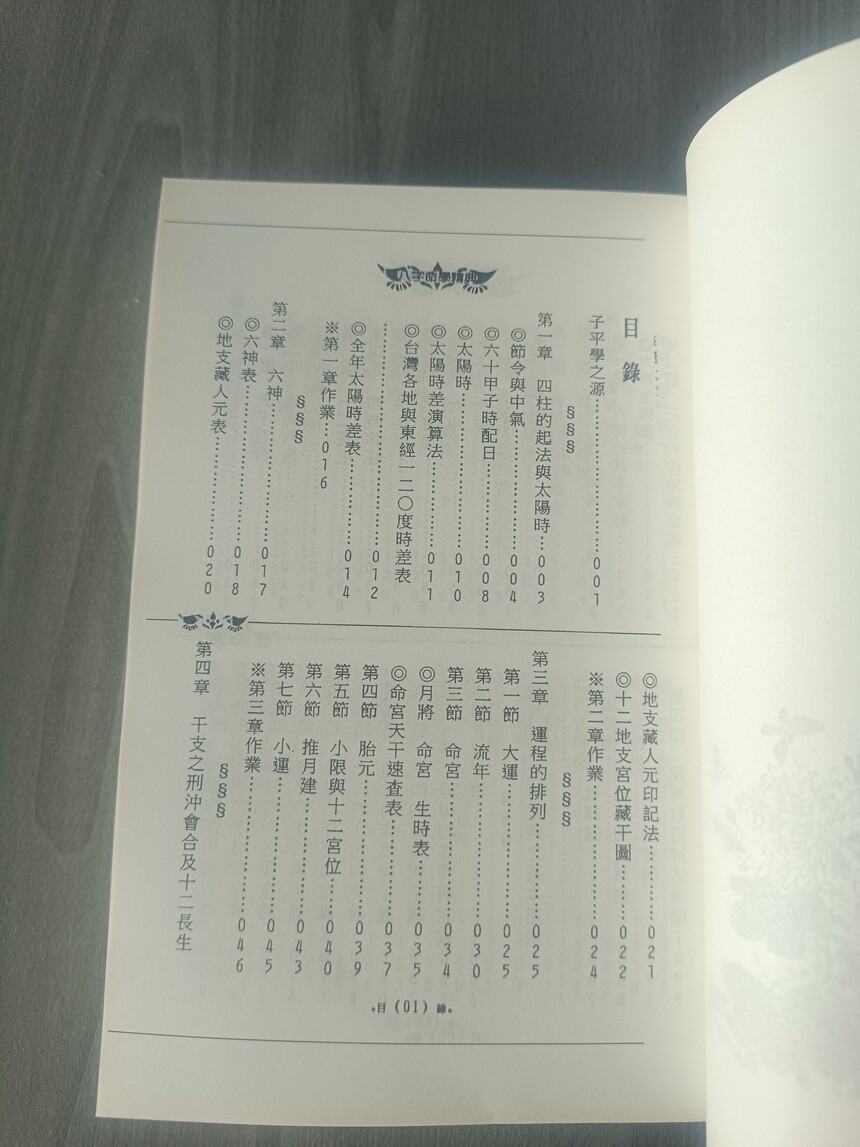 八字命學精典
目錄
子平學之源………………………001
§§§
第一章　四柱的起法與太陽時…003
◎節令與中氣……………………004
◎六十甲子時配日………………008
◎太陽時…………………………010
◎太陽時差演算法………………011
◎台灣各地與東經一二〇度時差表
……………………………………012
◎全年太陽時差表………………014
※第一章作業…016
§§§
第二章　六神……………………017
◎六神表…………………………018
◎地支藏人元表…………………020
◎地支藏人元印記法……………021
◎十二地支宮位藏干圖…………022
※第二章作業……………………024
§§§
第三章　運程的排列……………025
第一節　大運……………………025
第二節　流年……………………030
第三節　命宮……………………034
◎月將　命宮　生時表…………035
◎命宮天干速查表………………037
第四節　胎元……………………039
第五節　小限與十二宮位………040
第六節　推月建…………………043
第七節　小運……………………045
※第三章作業……………………046
§§§
第四章　干支之刑沖會合及十二長生
•目（01）錄•